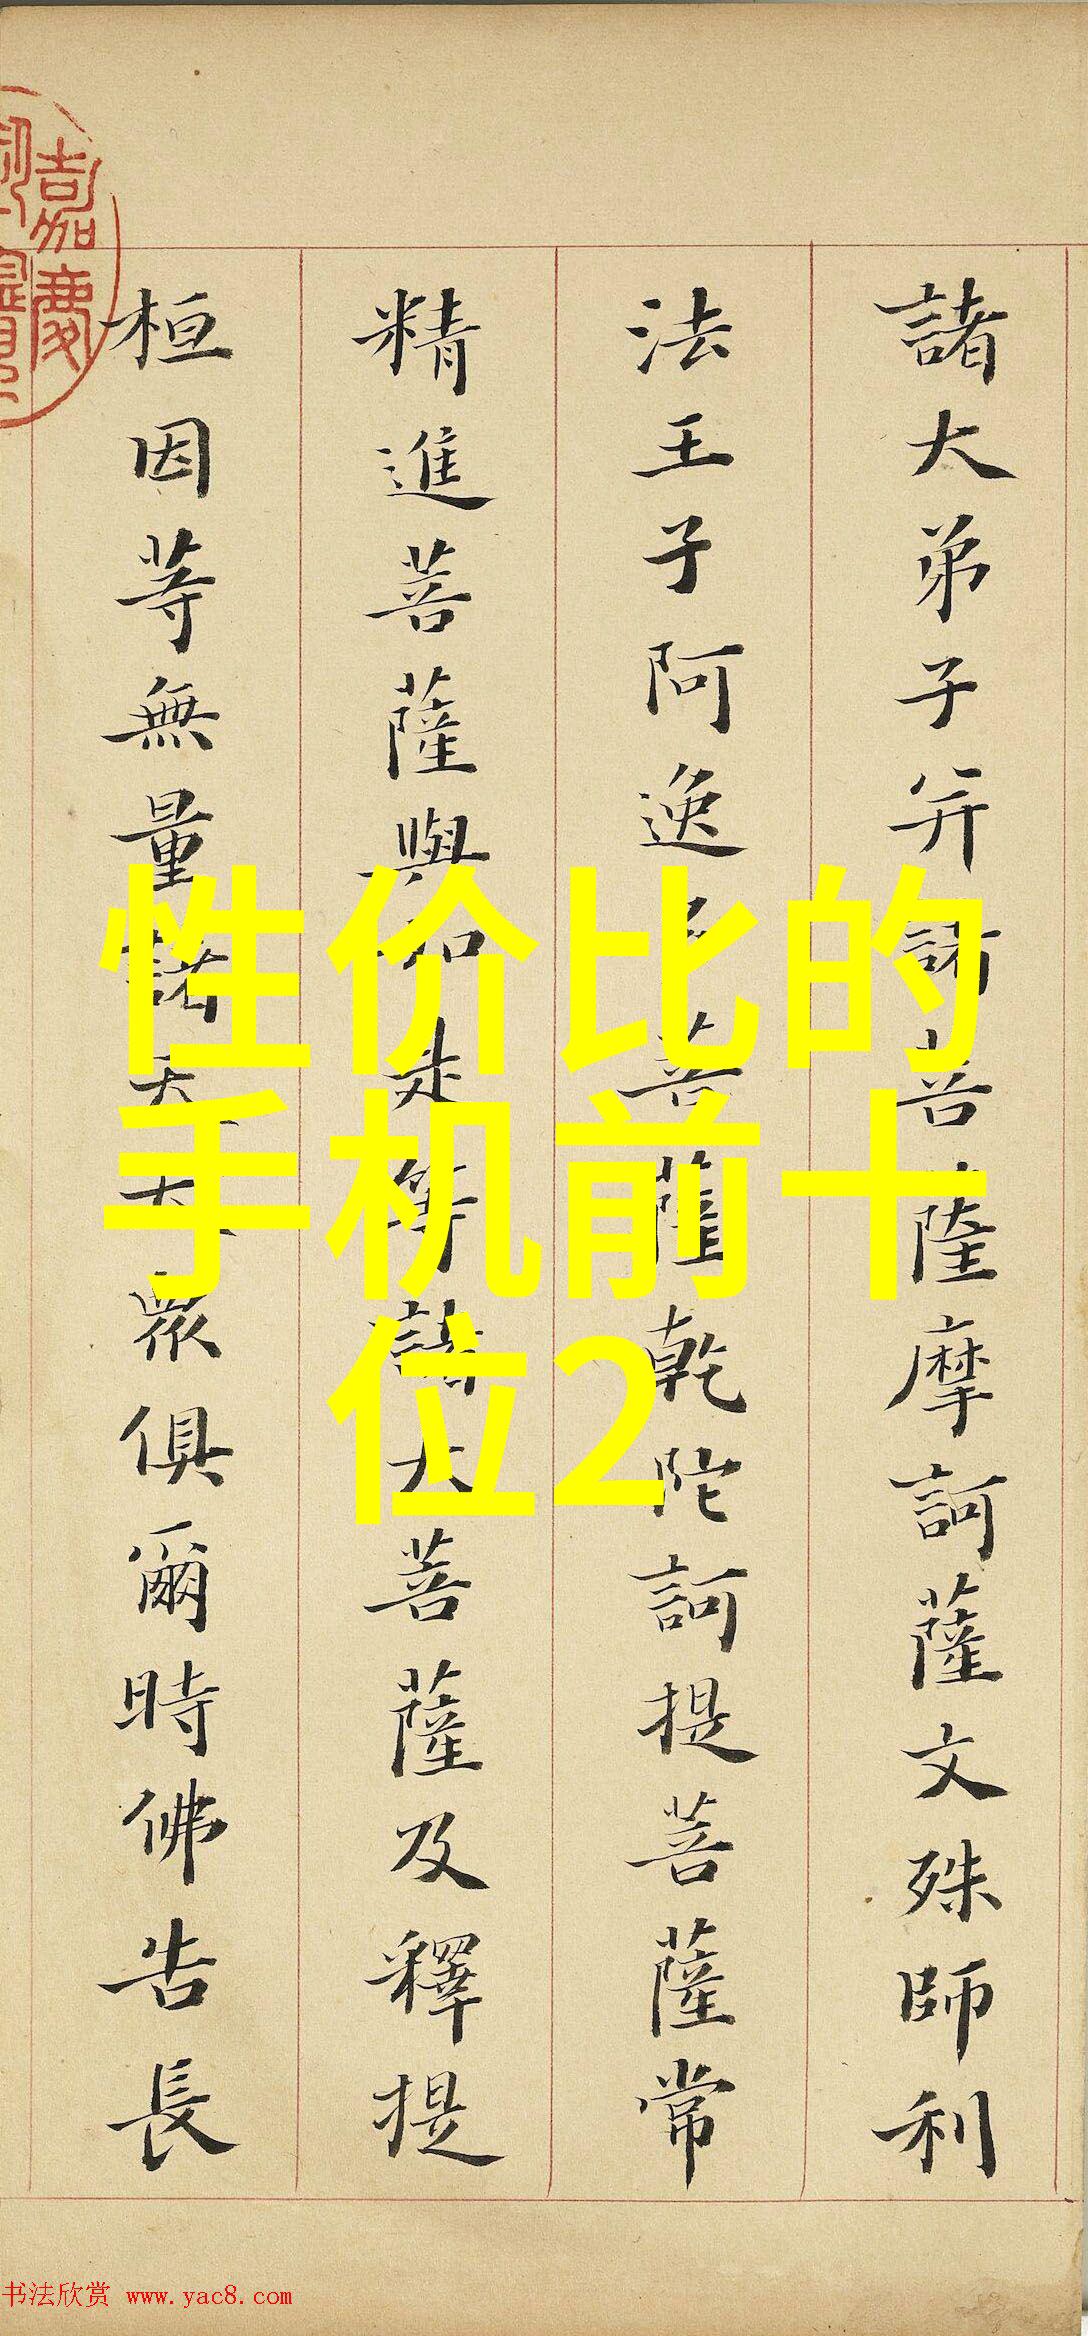 諸大弟子并諸菩薩摩訶薩文殊師利
法王子阿逸多菩薩乾陀訶提菩薩常
精進菩薩與如是等諸大菩薩及釋提
桓因等無量諸天大眾俱爾時佛告長
嘉慶
性价比的
手机前十
位2
书法欣赏 www.yac8.com